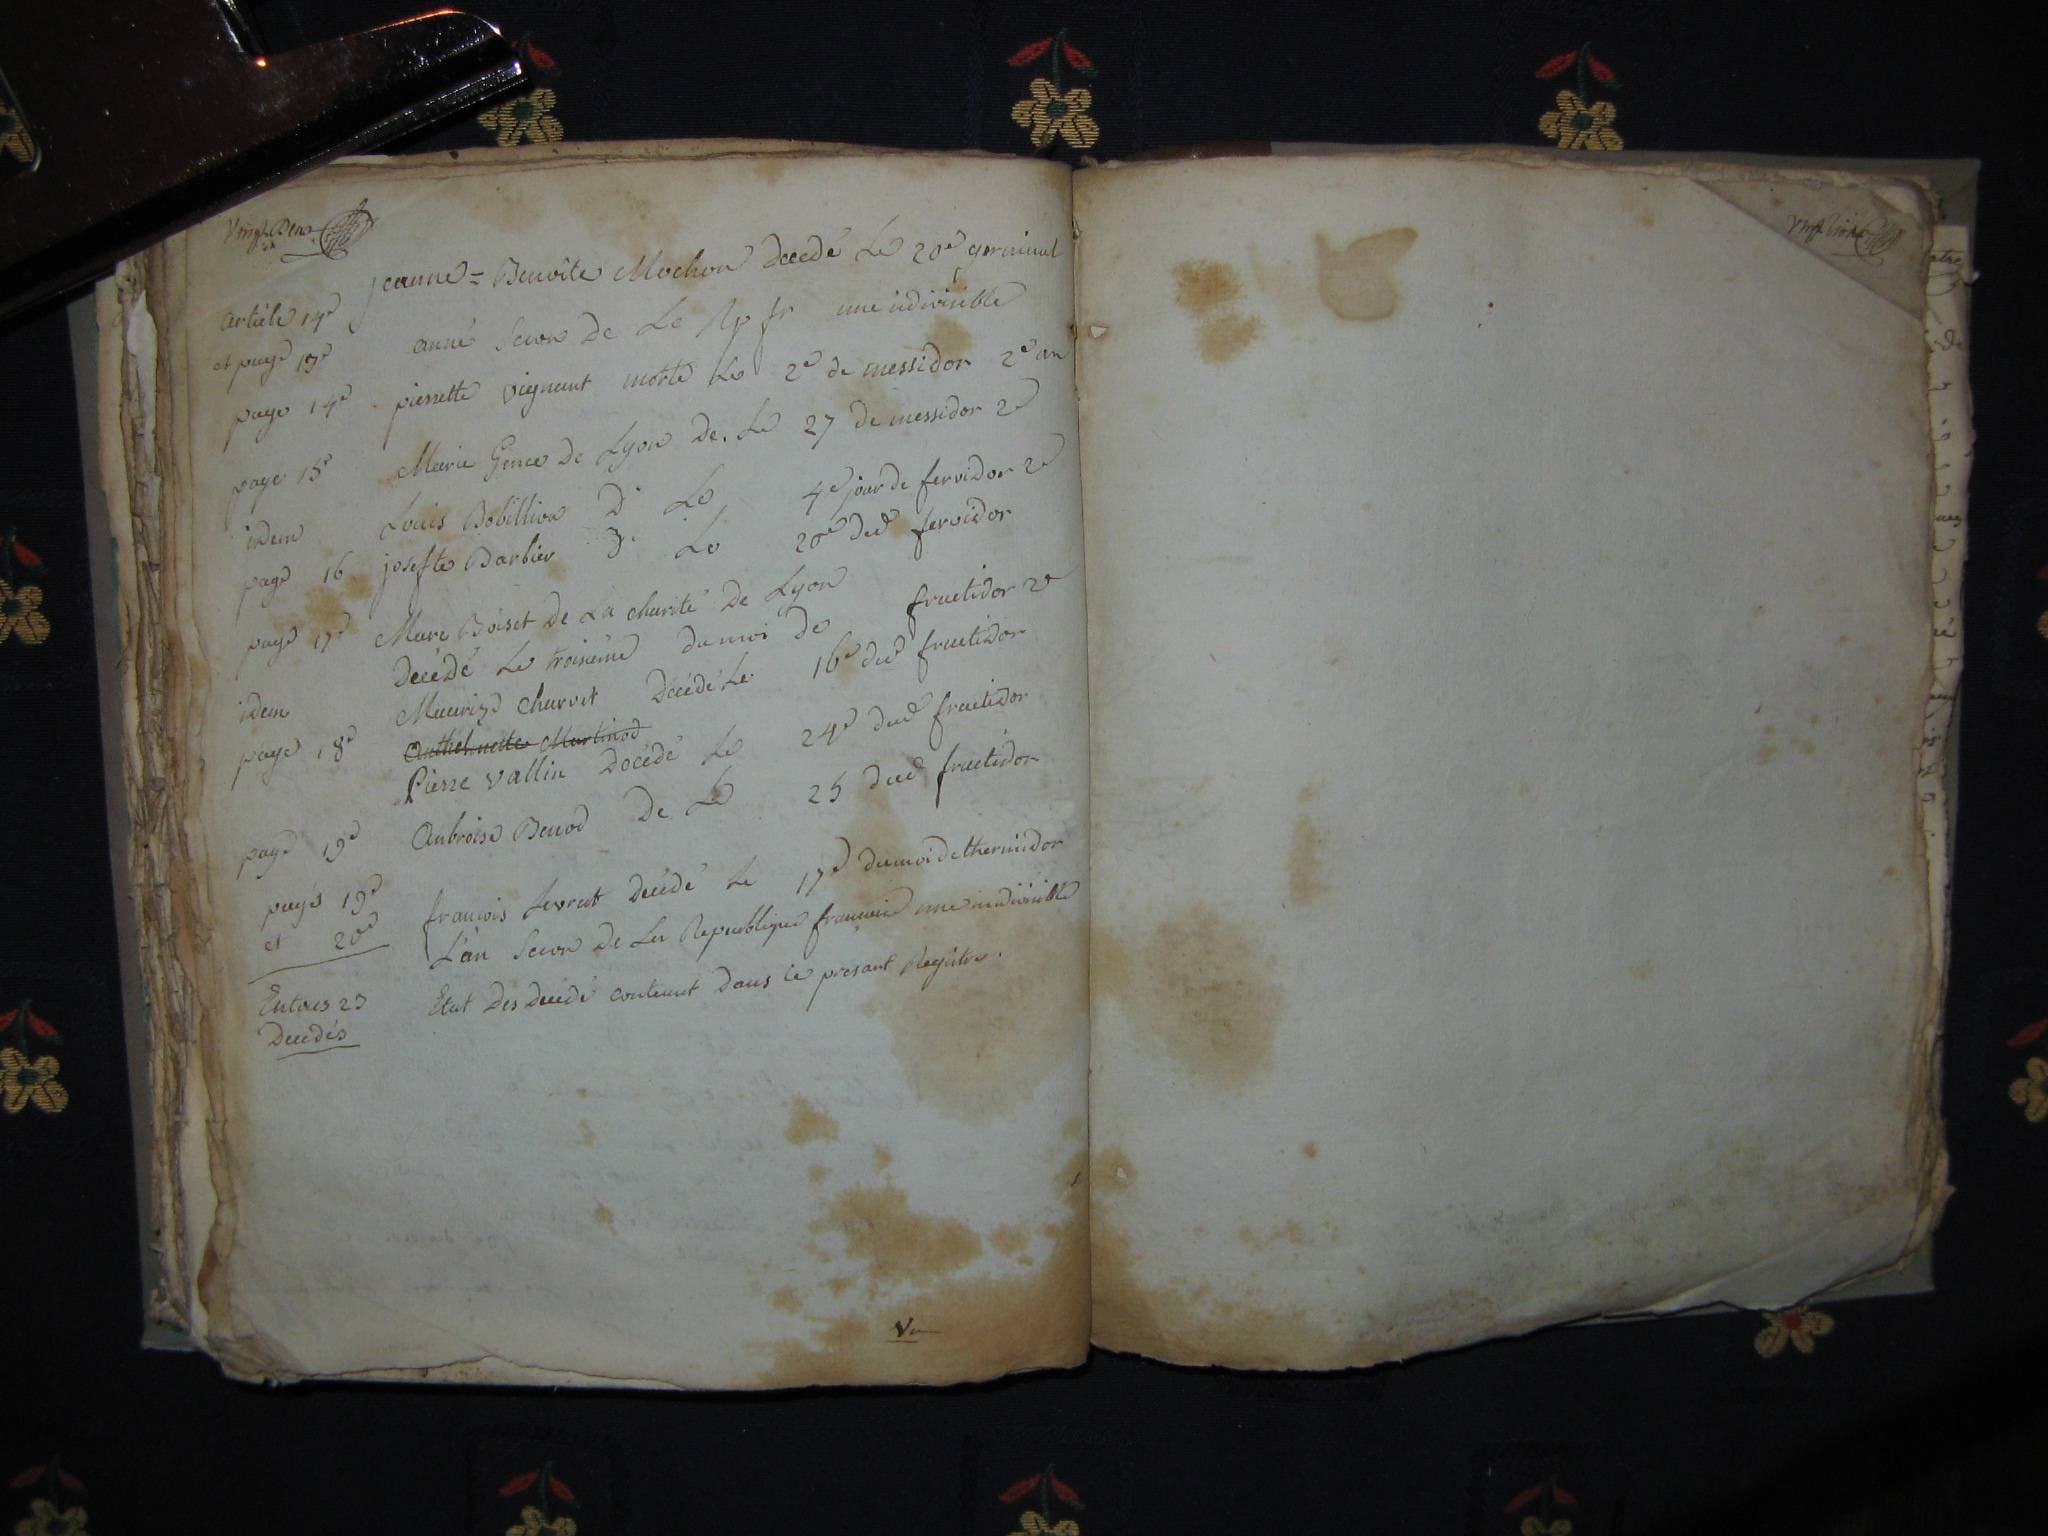 Vingt Deux
jeanne = Benoite Mochon Decedé Le 20e germinal
article 14e
et page 13e anné Secon De Le Rp fr une indivisible
page 14e pierrette vignant morte Le 2e de messidor 2e an
page 15e Marie Gence De Lyon De. Le 27 de messidor 2e
idem Louis Bobillion D. Le 4e jour de fervidor 2e
page 16 josefte Barbier D. Le 20e dud fervidor
page 17e Marc Boiset De La charité De Lyon
Décédé Le troisième du moi De fructidor 2e
idem Maurize charvet Décédé Le 16e dud fructidor
page 18e Anthelmette Martinod
Pierre Vallin Decédé Le 24e dud fructidor
page 19e Anbroise Benod De Le 25 dud fructidor
pages 19e
et 20e francois Levrat Décédé Le 17e du moi de thermidor
L'an Secon de La Republique francaise une indivisible
En tous 23
Decedés
Etat Des Decedé contenut Dans ce presant Regitre.
Vu
Vingt trois